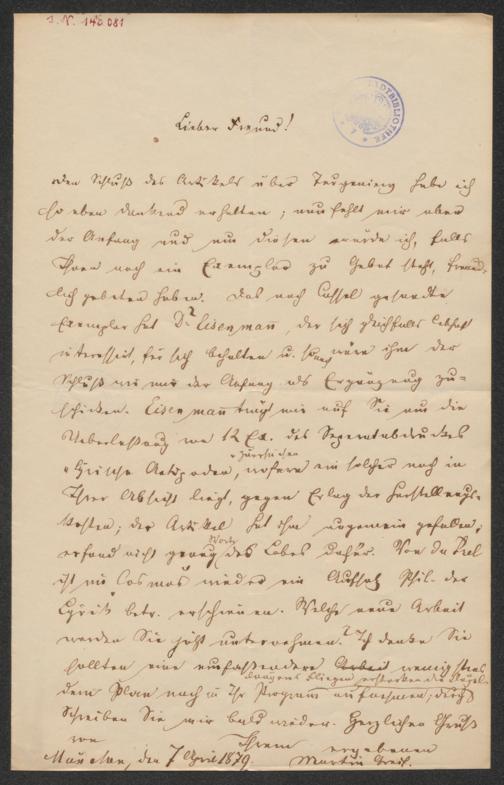 J. N. 140.081
Lieber Freund!
Den Schluß des Artikels über Turgeniew habe ich
so eben dankend erhalten; nun fehlt mir aber
der Anfang und um diesen würde ich, falls
Ihnen noch ein Exemplar zu Gebot steht, freund-
lich gebeten haben. Das nach Cassel gesandte
Exemplar hat Dr Eisenmann, der sich gleichfalls lebhaft
interessirt, für sich behalten u. wäre ihm der
Schluß wie mir der Anfang als Ergänzung zu-
schicken. Eisenmann trägt mir auf Sie um die
Ueberlassung von 12 Ex. des Separatabdruckes
"Lyrische Antipoden", wofern ein solcher noch in
Ihrer Absicht liegt, gegen Erlag der Herstellungs-
kosten; der Artikel hat ihm ungemein gefallen;
er fand nicht genug Worte des Lobes dafür. Von Du Prel
ist im "Cosmos" wieder ein Aufsatz Phil. der
Lyrik betr. erschienen. Welche neue Arbeit
werden Sie jetzt unternehmen? Ich denke Sie
sollten eine umfassendere Arbeit wenigstens
dem Plan nach in Ihr Programm aufnehmen;
Schreiben Sie mir bald wieder. Herzlichen Gruß
von Ihrem ergebenen
München, den 7 April 1879. Martin Greif.